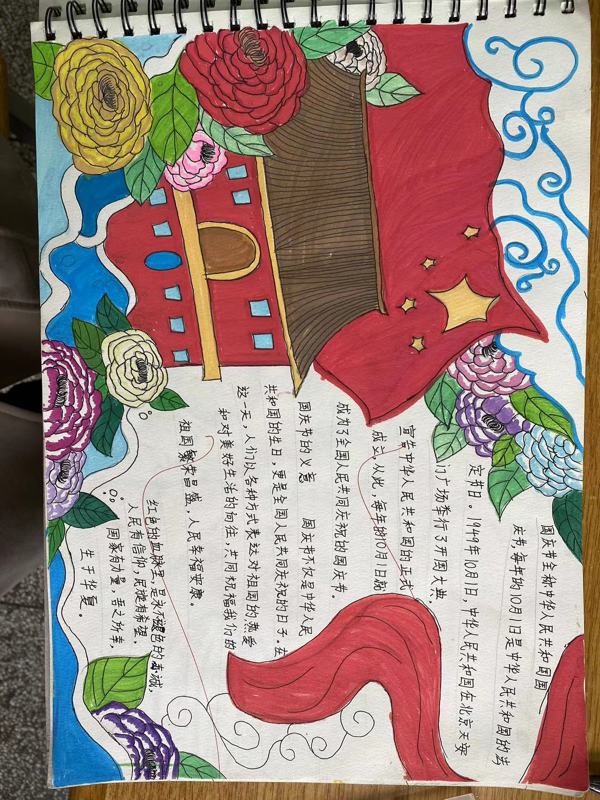 国庆节全称中华人民共和国国
庆节,每年的10月1日是中华人民共和国的法
定节日。1949年10月1日,中华人民共和国在北京天安
门广场举行了开国大典,
宣告中华人民共和国的正式
成立,从此,每年的10月1日就
成为了全国人民共同庆祝的国庆节。
国庆节的义意 国庆节不仅是中华人民
共和国的生日,更是全国人民共同庆祝的日子。在
这一天,人们以各种方式表达对祖国的热爱
和对美好生活的向往,共同祝福我们的
祖国繁荣昌盛,人民幸福安康。
红色的血脉里是永不褪色的赤诚,
人民有信仰,民族有希望,
国家有力量,吾之所幸,
生于华夏。